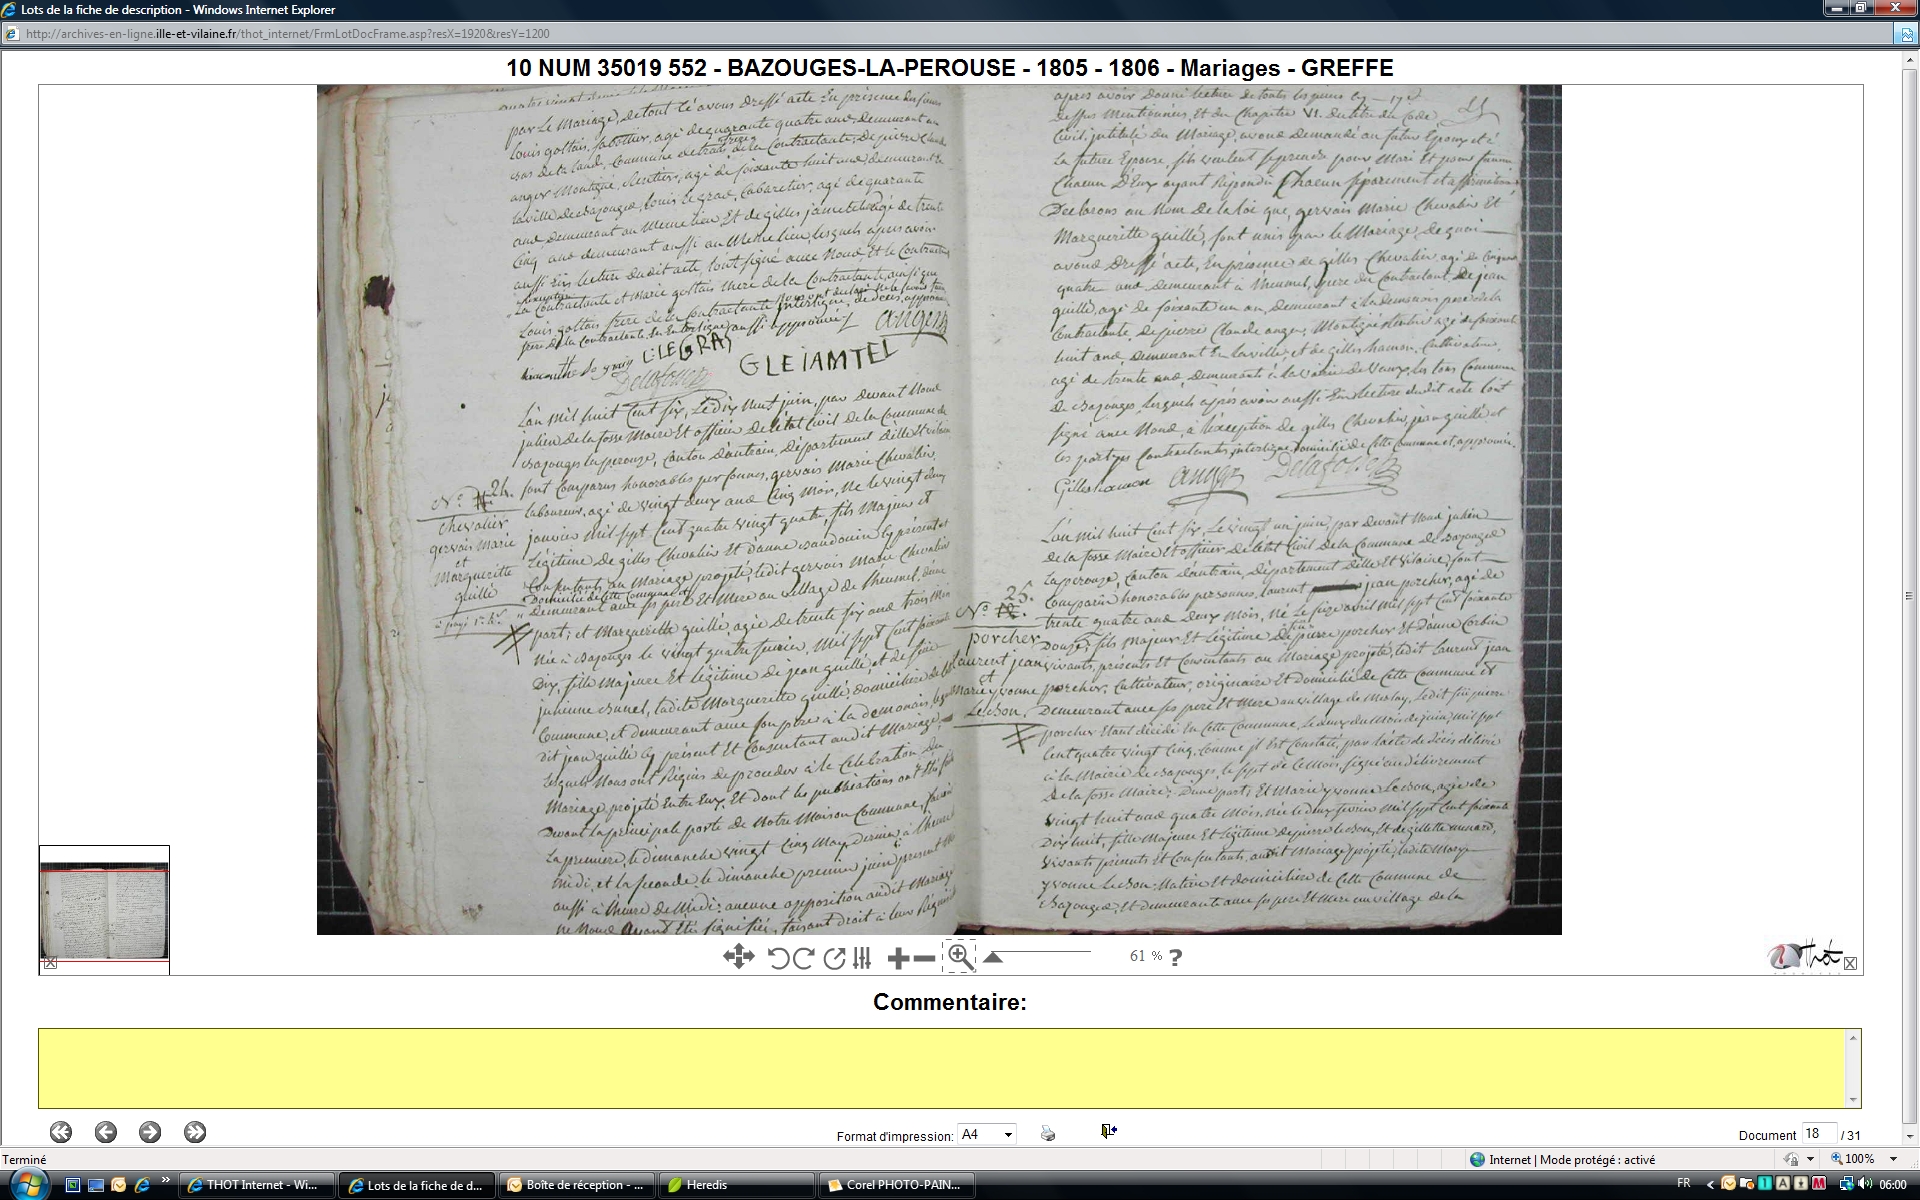 Lots de la fiche de description - Windows Internet Explorer
http://archives-en-ligne.ille-et-vilaine.fr/thot_internet/FrmLotDocFrame.asp?resX=1920&resY=1200
10 NUM 35019 552 - BAZOUGES-LA-PEROUSE - 1805 - 1806 - Mariages - GREFFE
par Le Mariage, de tout ce avons Dressé acte En présence
Louis gottais, Sabottier, agé de quarante quatre ans demeurant
anger Montigné, Rentier, agé de soixante huit ans, demeurant
la ville de Bazouges, Louis Le gras, Cabaretier, agé de quarante
ans, demeurant au Meme lieu, Et de gilles jametel agé de trente
Cinq ans demeurant aussi au Meme lieu, lesquels apres avoir
aussi Eu lecture du dit acte, l'ont signé avec Nous, Et le Contractant
La Contractante et Marie gottais Mere de la Contractante, ainsi que
Louis gottais frere de la Contractante
anger
L:LEGRAS
G LE IAMTEL
Delafosse
L'an Mil huit Cent Six, Le Dix Neuf juin, par devant Nous
julien de la fosse Maire Et officier de l'état Civil de la Commune de
Bazouges la perouze, Canton d'antrain, Département d'ille Et vilaine
sont Comparus honorables personnes, gervais Marie Chevalier,
laboureur, agé de vingt deux ans Cinq Mois, Né le vingt deux
janvier Mil sept Cent quatre vingt quatre, fils Majeur Et
Légitime de gilles Chevalier Et d'anne Baudouin Cy présents et
Consentants au Mariage projeté, ledit gervais Marie Chevalier
Domicilié de Cette Commune et
demeurant avec ses pere Et Mere au village de d'une
part; et Margueritte guillé, agée de trente six ans trois Mois
Née à Bazouges le vingt quatre fevrier, Mil sept Cent soixante
Dix, fille Majeure Et Légitime de jean guillé, et de feue
julienne Brunel, ladite Marguerite guillé, domiciliée de
Commune, et demeurant avec son pere à la demonais,
dit jean guillé Cy présent Et Consentant au dit Mariage,
Lesquels Nous ont Requis de proceder à la Celebration du
Mariage projeté Entre Eux, Et dont les publications ont Eté
Devant la principale porte de Notre Maison Commune,
La premiere, le dimanche vingt Cinq May Dernier, à l'heure
Midi, et la seconde, le dimanche premier juin présent
aussi à l'heure de Midi: aucune opposition au dit Mariage
ne Nous ayant Eté signifiée, faisant Droit à leur
N° 24.
Chevalier
gervais Marie
et
Marguerite
guillé
apres avoir donné lecture de toutes les pieces Cy
dessus Mentionnées, Et du Chapitre VI. du titre du Code,
Civil, intitulé, du Mariage, avons demandé au futur Epoux et à
La future Epouse, s'ils veulent se prendre pour Mari Et pour femme
Chacun D'Eux ayant Répondu Chacun séparement et affirmativement
Declarons au Nom de la loi que, gervais Marie Chevalier Et
Marguerite guillé, sont unis par le Mariage, de quoi
avons Dressé acte, En présence de gilles Chevalier, agé de Cinquante
quatre ans demeurant à pere du Contractant. De jean
guillé, agé de soixante un an, demeurant à la demonais pere de la
Contractante, de pierre Claude anger, Montigné Rentier agé de soixante
huit ans, demeurant En la ville, et de gilles hamon, Cultivateur,
agé de trente ans, demeurant à tous Commune
de Bazouges, lesquels apres avoir aussi Eu lecture du dit acte l'ont
signé avec Nous, à l'exception de gilles Chevalier, jean guillé et
les parties Contractantes, interligne Domicilié de Cette Commune et, approuvé.
Gilles hamon anger Delafosse
L'an Mil huit Cent Six, Le vingt un juin, par devant Nous julien
de la fosse Maire Et officier de l'état Civil de la Commune de Bazouges
La perouze, Canton d'antrain, département d'ille Et vilaine, sont
Comparus honorables personnes, laurent jean porcher, agé de
trente quatre ans Deux Mois, Né Le seize avril Mil sept Cent soixante
Douze, fils Majeur Et Légitime de feu pierre porcher Et d'anne Corbin
vivants, présents Et Consentants au Mariage projeté, ledit laurent jean
porcher, Cultivateur, originaire Et Domicilié de Cette Commune Et
Demeurant avec ses pere Et Mere au village de ledit feu pierre
porcher Etant décédé En Cette Commune, le deux du Mois de juin, mil sept
Cent quatre vingt Cinq, Comme il Est Constaté, par l'acte de décès délivré
à la Mairie de Bazouges, le sept de Ce Mois, signé au délivrement
De la fosse Maire; D'une part; Et Marie yvonne Lechon, agée de
vingt huit ans quatre Mois, Née le deux fevrier Mil sept Cent soixante
Dix huit, fille Majeure Et Légitime de pierre Lechon, Et de gillette
vivants présents Et Consentants, au dit Mariage projeté, ladite Marie
yvonne Lechon, Native Et domiciliée de Cette Commune de
Bazouges, Et demeurante avec ses pere Et Mere au village de la
N° 25.
porcher
laurent jean
et
Marie yvonne
Lechon.
61 % ?
Thot
Commentaire:
Format d'impression: A4
Document 18 / 31
Terminé
Internet | Mode protégé : activé
100%
THOT Internet - Wi...
Lots de la fiche de d...
Boîte de réception - ...
Heredis
Corel PHOTO-PAIN...
FR
06:00